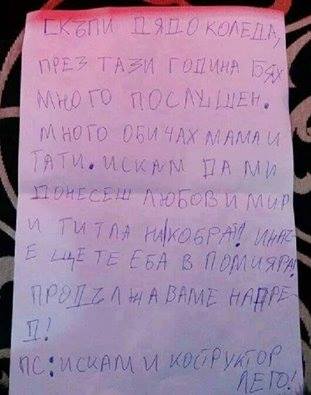 СКЪПИ ДЯДО КОЛЕДА,
ПРЕЗ ТАЗИ ГОДИНА БЯХ
МНОГО ПОСЛУШЕН.
МНОГО ОБИЧАХ МАМА И
ТАТИ. ИСКАМ ДА МИ
ДОНЕСЕШ ЛЮБОВ И МИР
И ТИТЛА НИКОБРА!! ИНАЧ
Е ЩЕ ТЕ ЕБА В ПОМИЯРА!
ПРОДЪЛЖАВАМЕ НАПРЕ
Д!
ПС: ИСКАМ И КОСТРУКТОР
ЛЕГО!